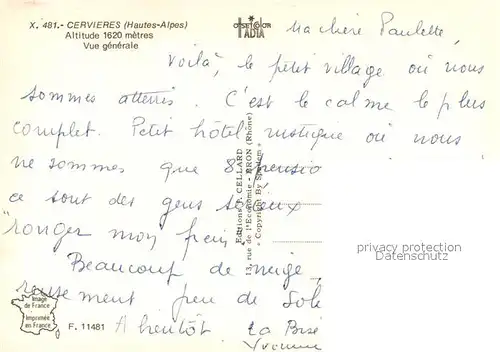 X. 481.- CERVIERES (Hautes-Alpes)
Altitude 1620 mètres
Vue générale
COLOR
IADIA
Ma chère Paulette,
Voilà, le petit village où nous
sommes atterris. C'est le calme le plus
complet. Petit hôtel rustique où nous
ne sommes que 8
ce sont des gens
"ronger mon frein
Beaucoup de neige
peu de
A bientôt La Bise
Yvonne
Editions CELLARD
13, rue de l'Economie - BRON (Rhône)
« Copyright By »
privacy protection
Datenschutz
Image
de France
Imprimée
en France
F. 11481